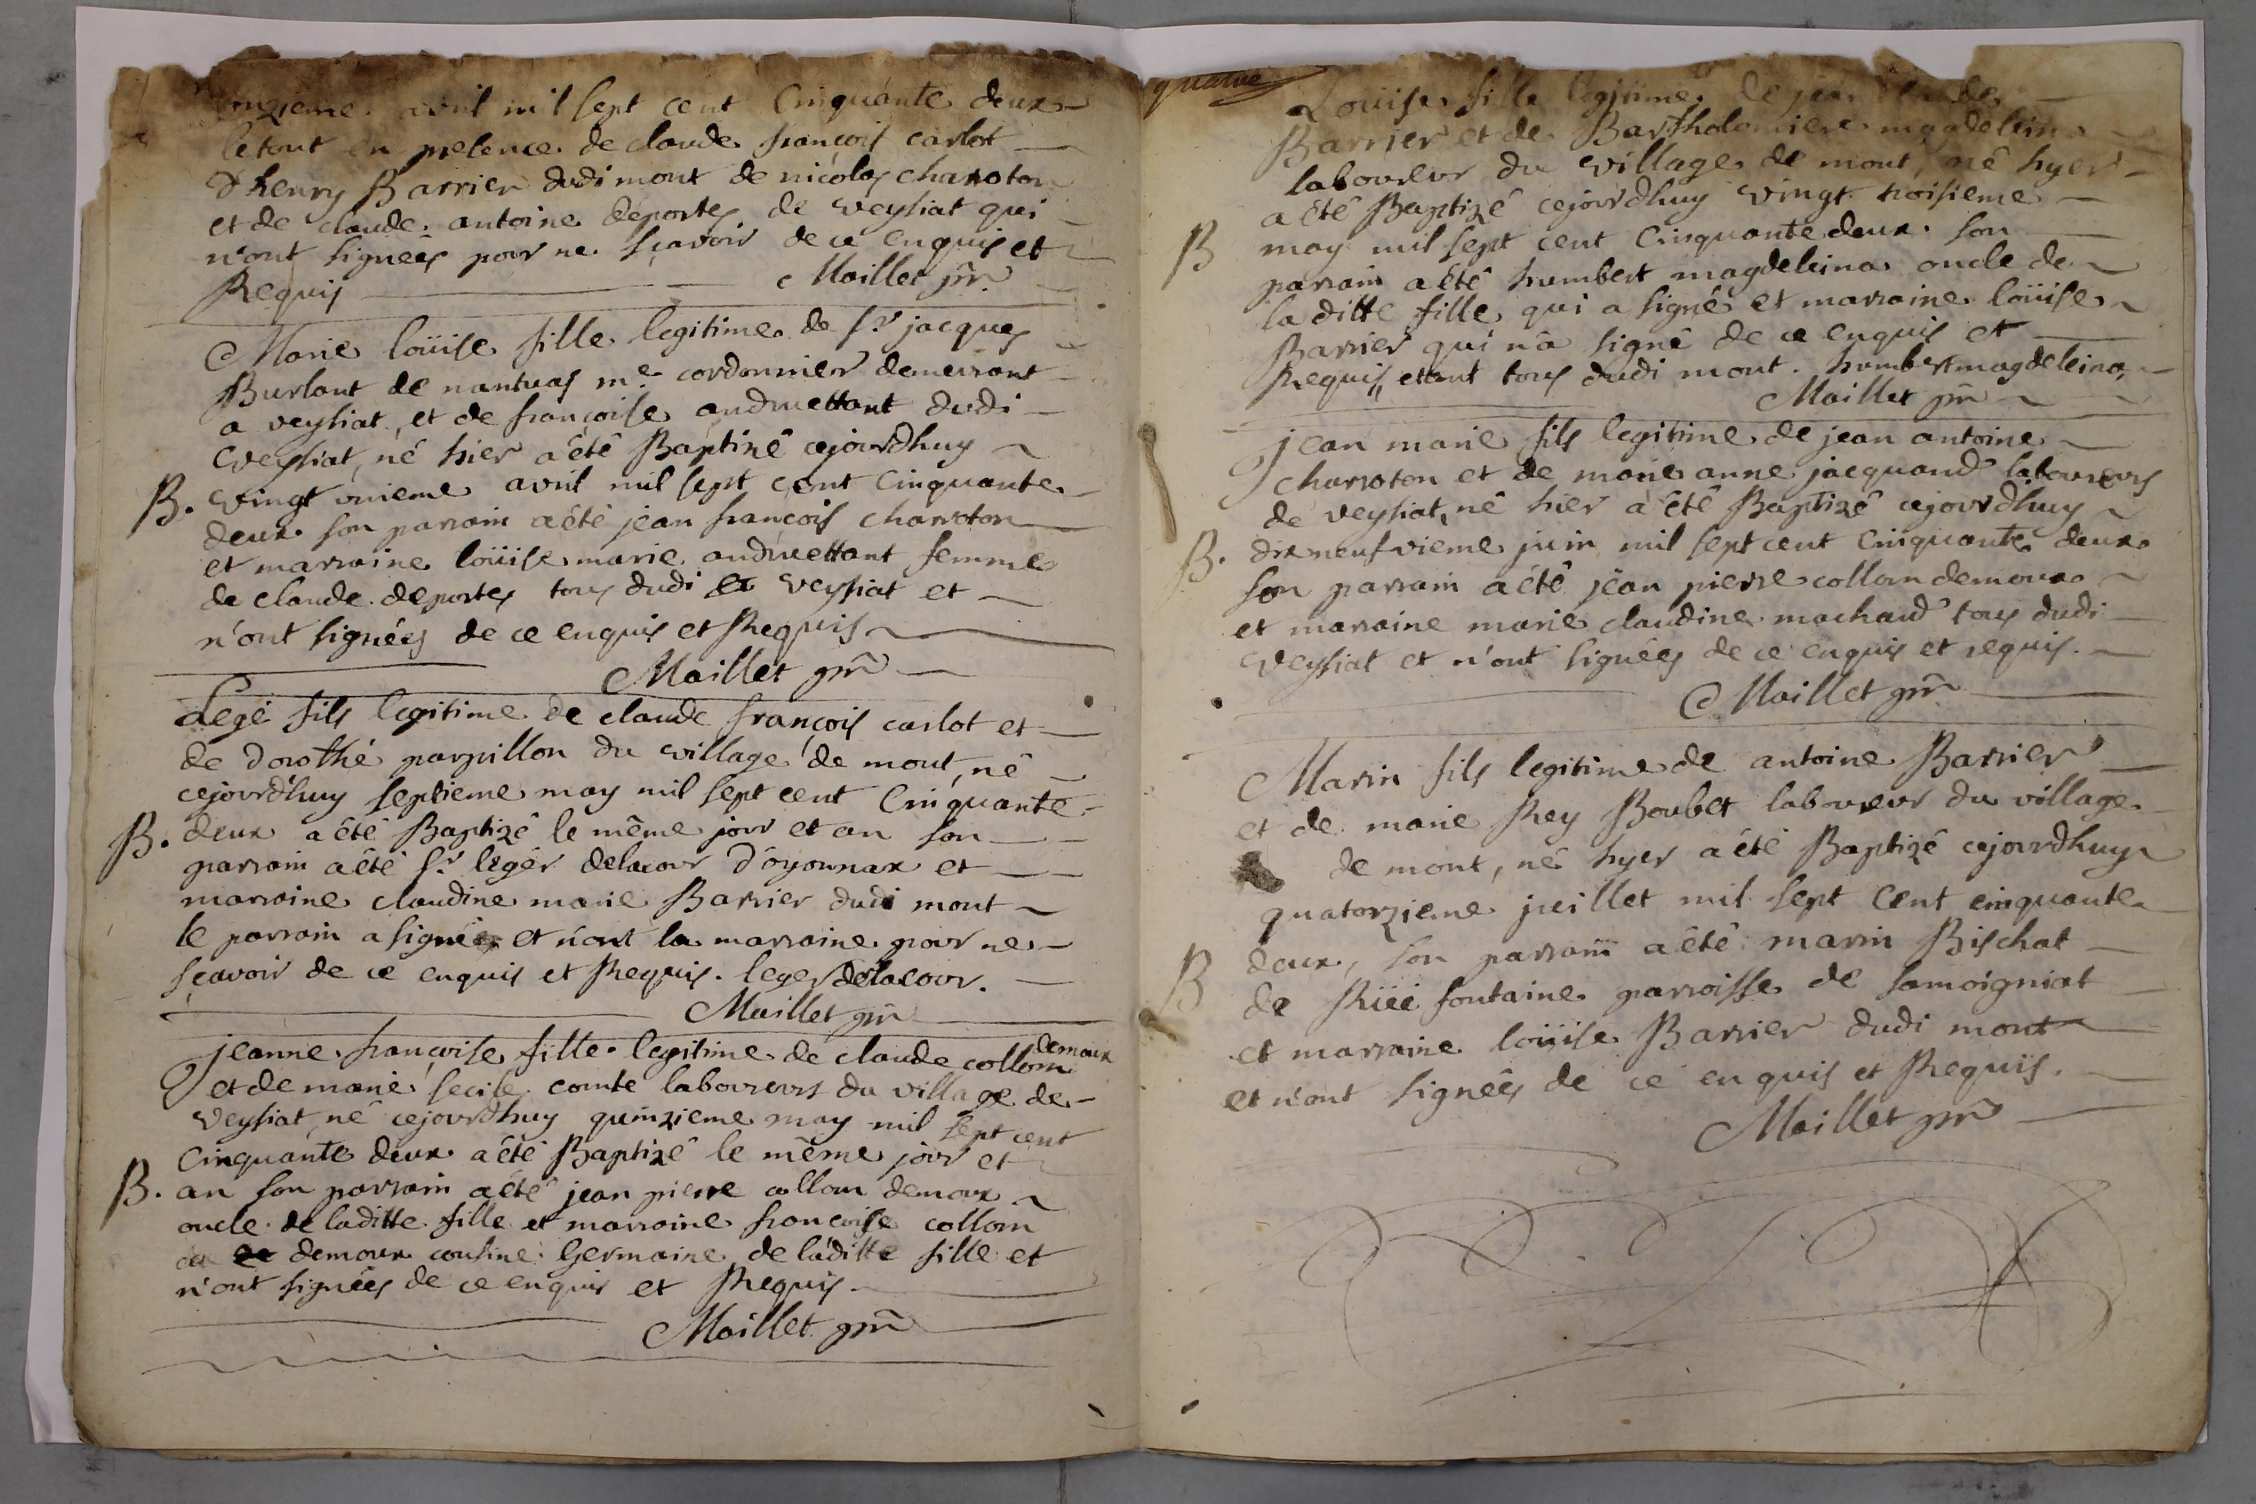 avril mil sept cent Cinquante deux
le tout en presence de claude françois carlot
d'henry Barrier dudi mont de nicolas charroton
et de claude antoine deportes de veysiat qui
n'ont signées pour ne sçavoir de ce enquis et
Requis Maillet ptr̃
Marie loüise fille legitime de sr jacques
Burlant de nantuas me cordonnier demeurant
a veysiat, et de françoise andruettant dudi
veysiat, né hier a été Baptizé cejourdhuy
B. vingt unieme avril mil sept cent Cinquante
deux son parrain a été jean françois charroton
et marraine loüise marie andruettant femme
de claude deportes tous dudi veysiat et
n'ont signées de ce enquis et Requis
Maillet ptr̃
Legé fils legitime de claude françois carlot et
de dorothé parpillon du village de mont, né
cejourd'huy septieme may mil sept cent Cinquante
B. deux a été Baptizé le même jour et an son
parrain a été sr legér delacour d'oyonnax et
marraine claudine marie Barrier dudi mont
le parrain a signé et n'ont la marraine pour ne
sçavoir de ce enquis et Requis. leger delacour.
Maillet ptr̃
jeanne françoise fille legitime de claude collom demoux
et de marie secile comte laboureurs du village de
veysiat, né cejourdhuy quinzieme may mil sept cent
Cinquante deux a été Baptizé le même jour et
B. an son parrain a été jean pierre collom demoux
oncle de laditte fille et marraine françoise collom
demoux cousine Germaine de laditte fille et
n'ont signées de ce enquis et Requis.
Maillet ptr̃
quatre
Loüise fille legitime de jean claude
Barrier et de Bartholomiere magdelein
laboureur du village de mont, né hyer
a été Baptizé cejourdhuy vingt troisieme
B may mil sept cent Cinquante deux. son
parrain a été humbert magdeleina oncle de
la ditte fille qui a signé et marraine loüise
Barrier qui n'a signé de ce enquis et
Requis, etant tous dudi mont. humbert magdeleina
Maillet ptr̃
jean marie fils legitime de jean antoine
charroton et de marie anne jacquand laboureurs
de veysiat, né hier a été Baptizé cejourdhuy
B. dixneufvieme juin mil sept cent Cinquante deux
son parrain a été jean pierre collom demoux
et marraine marie claudine machard tous dudi
veysiat et n'ont signées de ce enquis et requis.
Maillet ptr̃
Marin fils legitime de antoine Barrier
et de marie Rey Boubet laboureur du village
de mont, né hyer a été Baptizé cejourdhuy
quatorzieme juillet mil sept Cent cinquante
B deux, son parrain a été marin Bischat
de Rüé fontaine parroisse de samoigniat
et marraine loüise Barrier dudi mont
et n'ont signées de ce enquis et Requis.
Maillet ptr̃